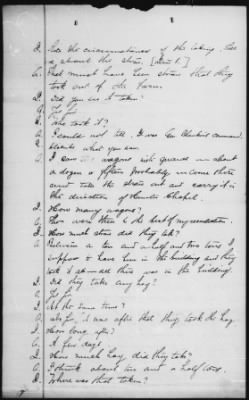 Q. State the circumstances of the taking. This
is about the straw, [Item 1.]
A. That must have been straw that they
took out of the barn.
Q. Did you see it taken?
A. Yes Sir.
Q. Who took it?
A. I could not tell. It was Gen command.
Q. Describe what you saw.
A. I saw wagons with guards in about
a dozen or fifteen probably in come there
and take the straw out and carry it in
the direction of Chapel.
Q. How many wagons?
A. Two were there to the best of my recollection.
Q. How much straw did they take?
A. Between a ton and a half and two tons I
suppose to have been in the building and they
took it all there was in the building.
Q. Did they take any hay?
A. Yes Sir.
Q. At the same time?
A. No Sir, it was after that they took the hay.
Q. How long after?
A. A few days.
Q. How much hay did they take?
A. I think about two and a half tons.
Q. Where was that taken?